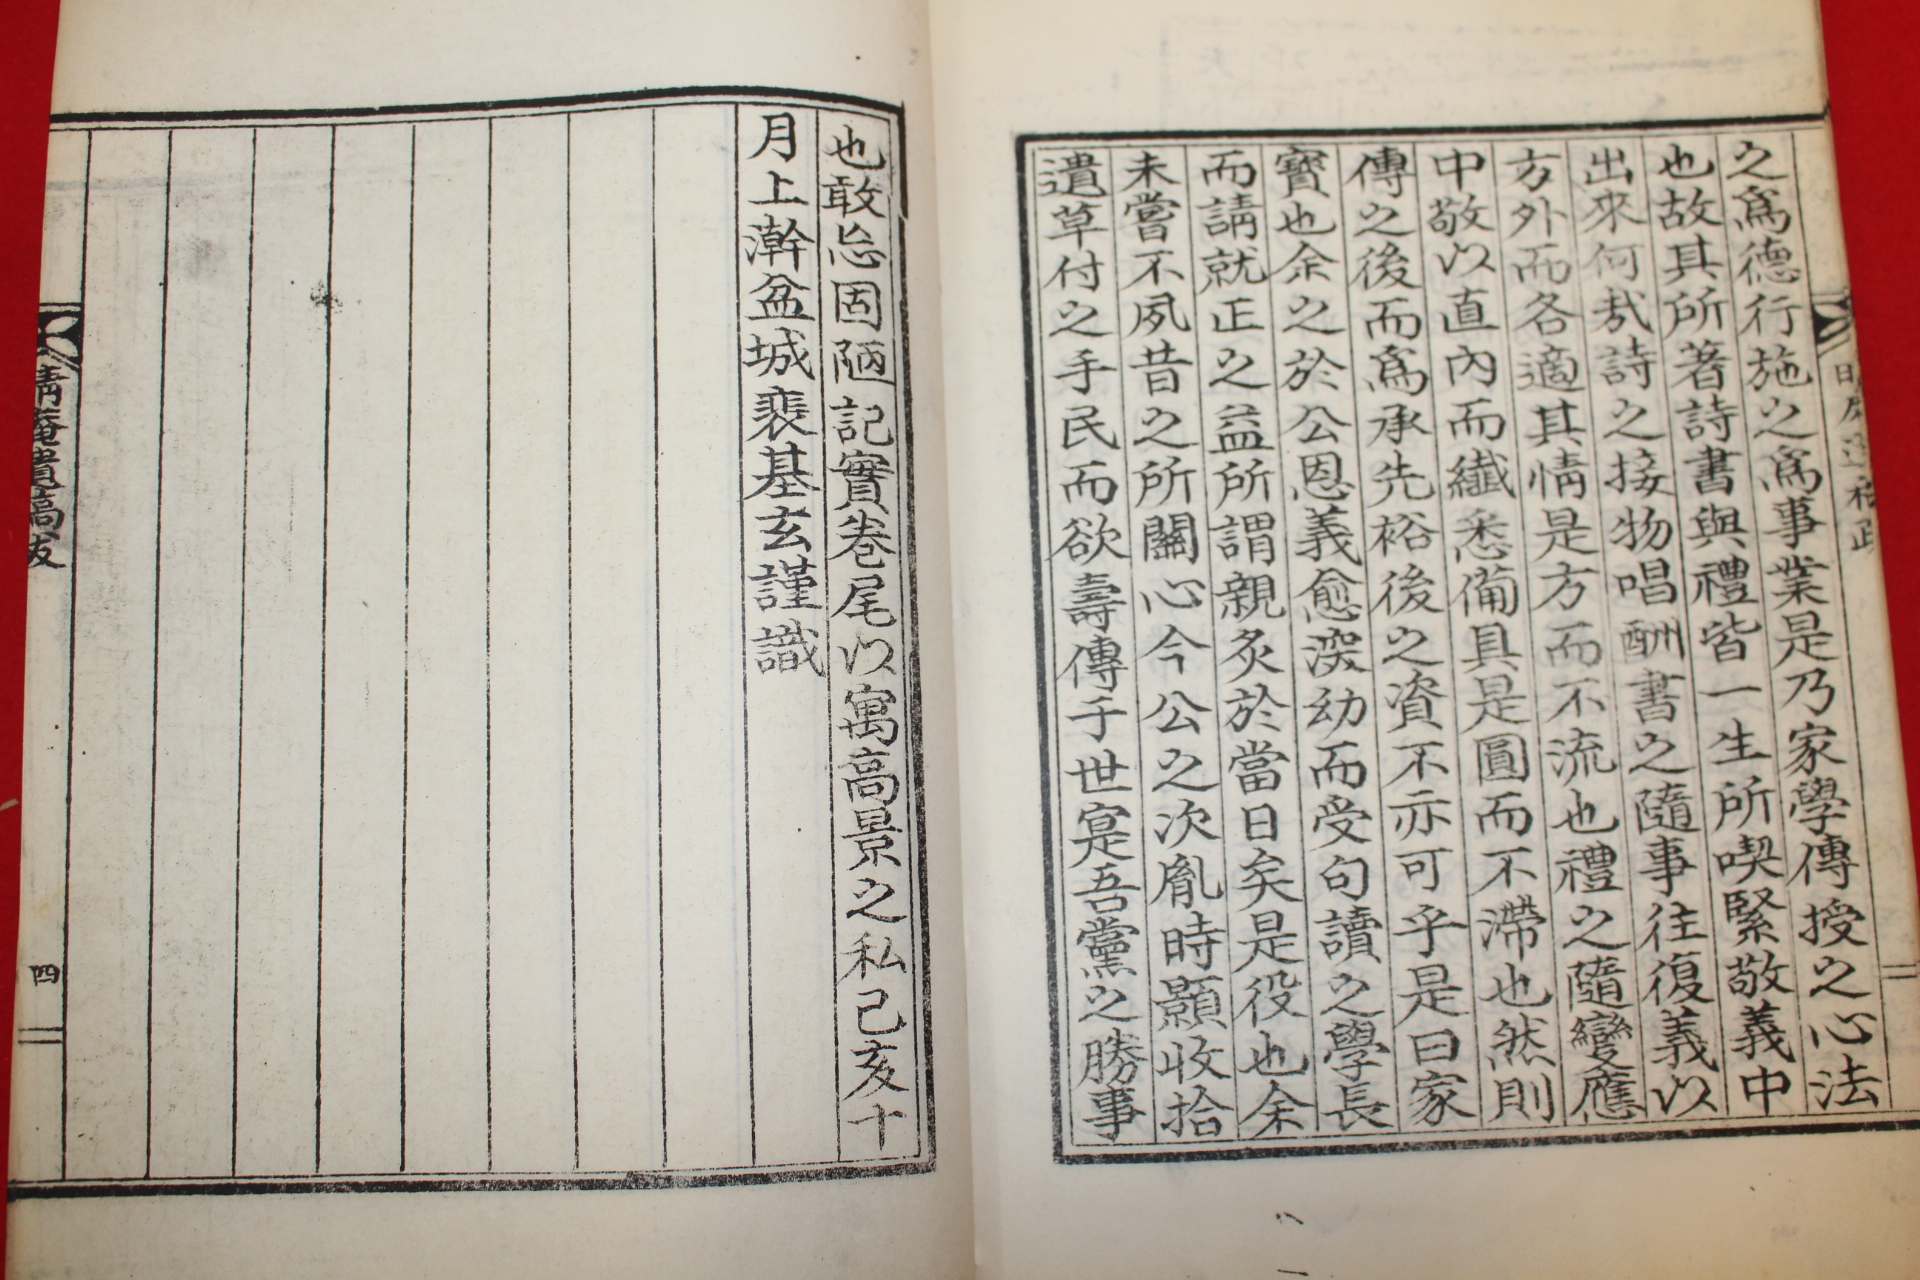 之爲德行施之爲事業是乃家學傳授之心法
也故其所著詩書與禮皆一生所喫緊敬義中
出來何哉詩之接物唱酬書之隨事往復義以
方外而各適其情是方而不流也禮之隨變應
中敬以直內而纖悉備具是圓而不滯也然則
傳之後而爲承先裕後之資不亦可乎是曰家
寶也余之於公恩義愈深幼而受句讀之學長
而請就正之益所謂親炙於當日矣是役也余
未嘗不夙昔之所關心今公之次胤時顯收拾
遺草付之手民而欲壽傳于世寔吾黨之勝事
也敢忘固陋記實卷尾以寓高景之私己亥十
月上澣盆城裴基玄謹識
晴庵遺稿跋
四